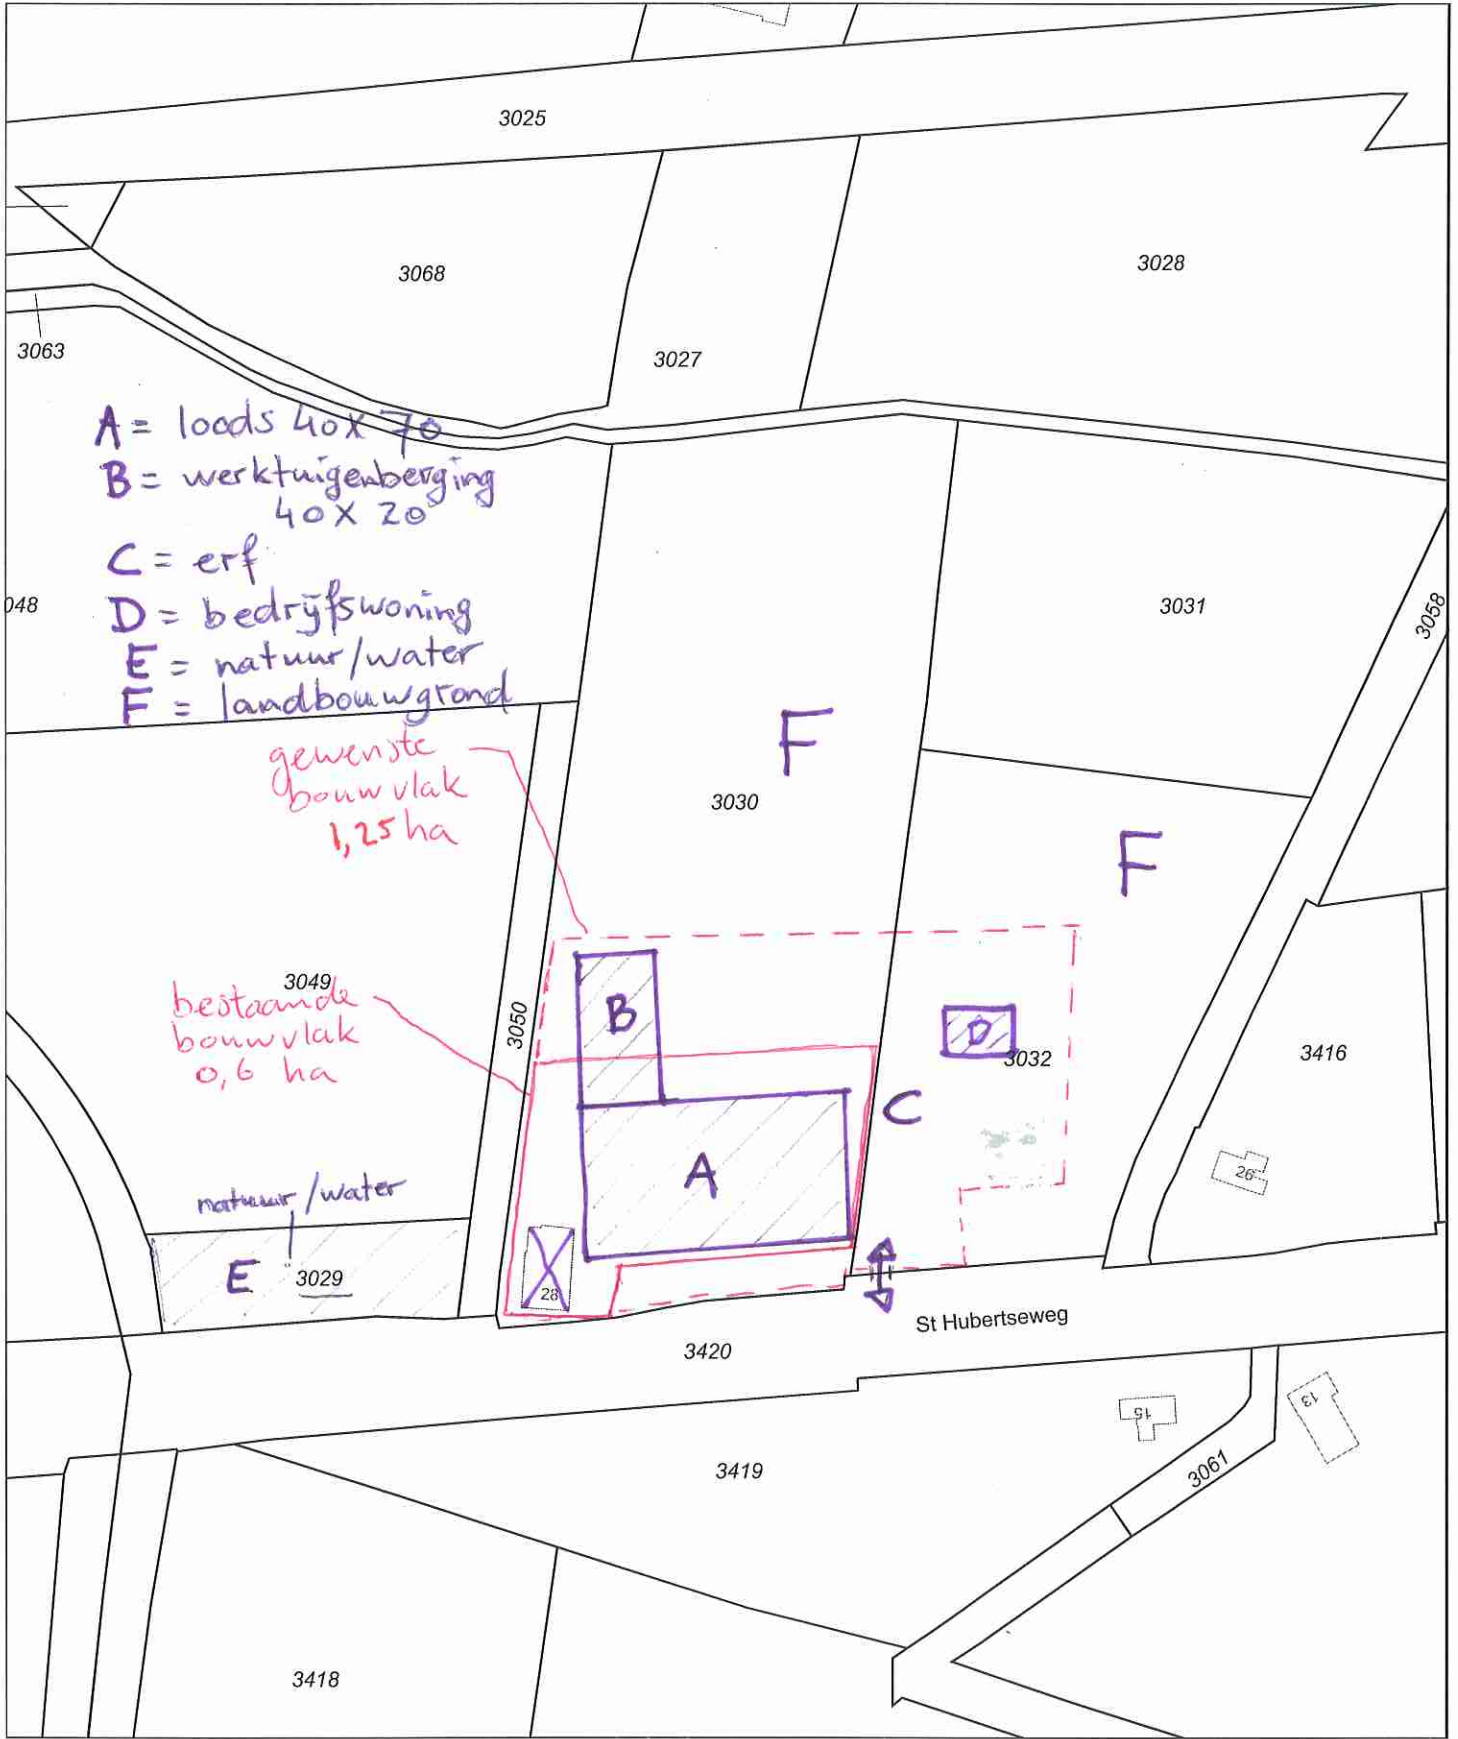 3025
3068
3028
3063
3027
A = loods 40 x 70
B = werktuigenberging
40 x 20
C = erf
048
D = bedrijfswoning
3031
3058
E = natuur/water
F = landbouwgrond
gewenste
bouwvlak
1,25 ha
F
3030
F
3049
bestaande
bouwvlak
0,6 ha
3050
B
D
3032
3416
C
A
26
natuur/water
E
3029
28
St Hubertseweg
3420
15
13
3419
3061
3418